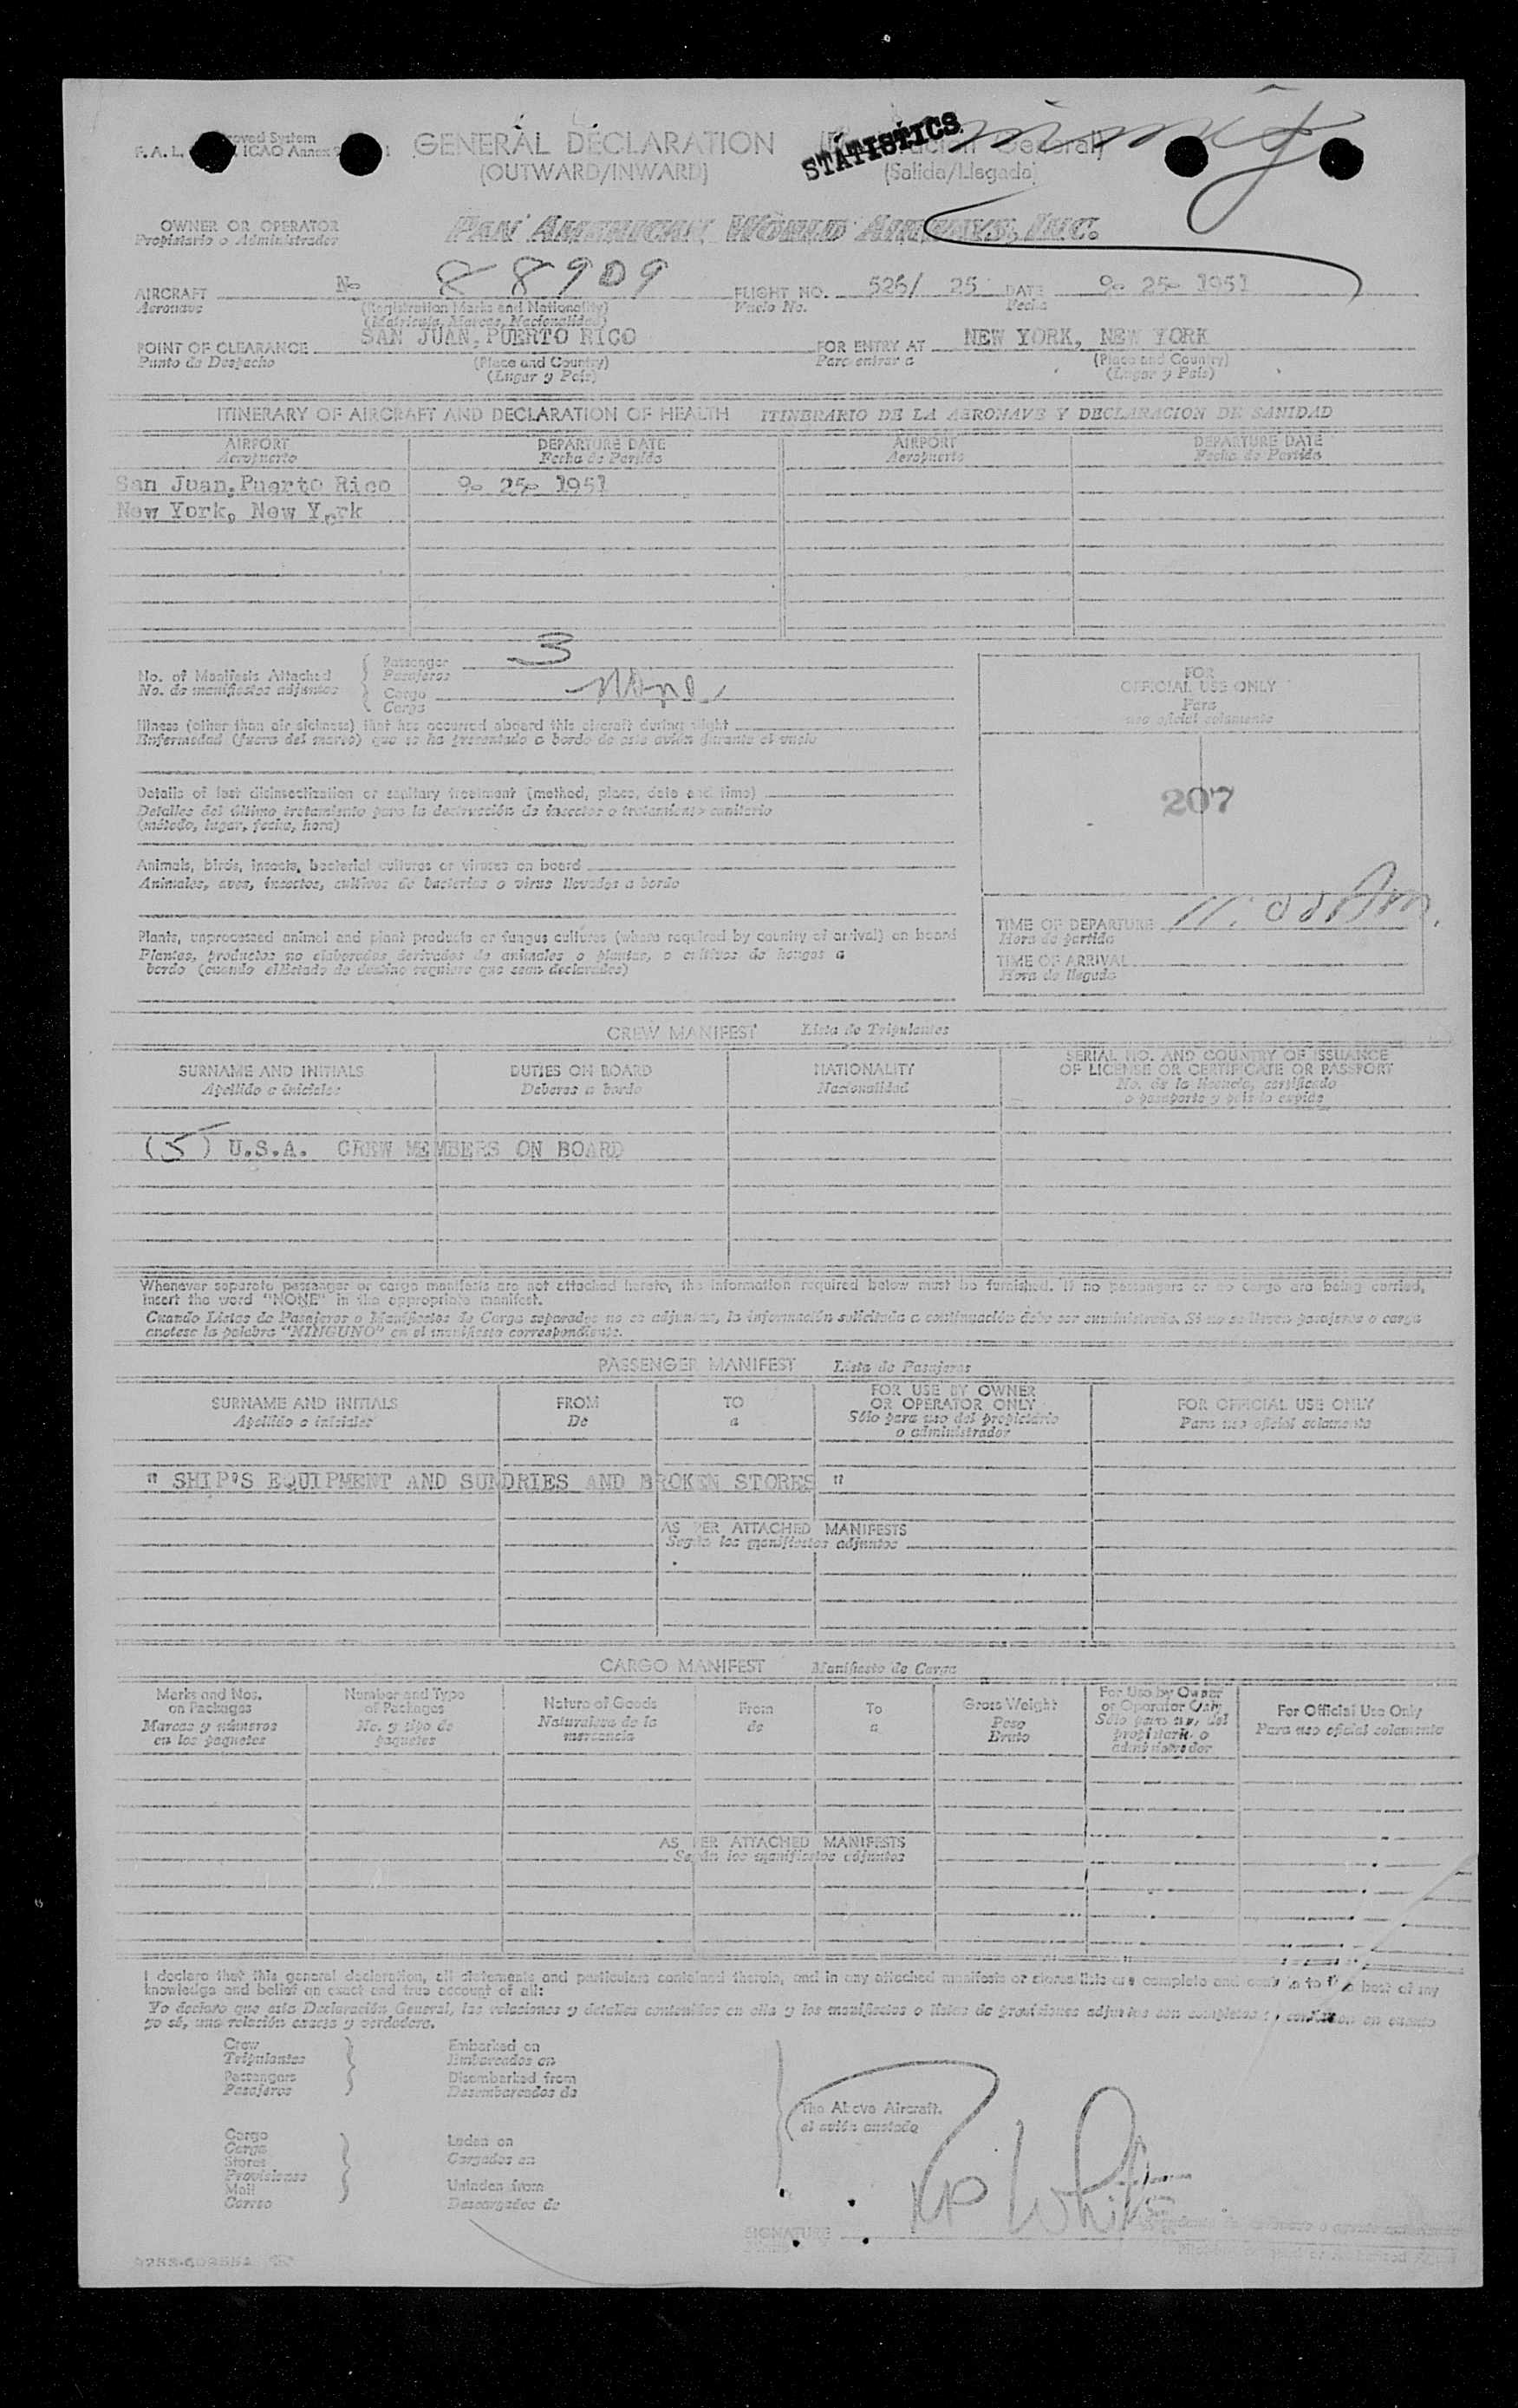 F. A. L. ICAO Annex 9
GENERAL DECLARATION General)
(OUTWARD/INWARD) (Salida/Llegada)
STATISTICS
OWNER OR OPERATOR PAN AMERICAN WORLD AIRWAYS, INC.
Propietario o Administrador
AIRCRAFT No 88909 FLIGHT NO. 526/ 25 DATE 9- 25- 1951
Aeronave (Registration Marks and Nationality) Vuelo No. Fecha
(Matricula, Marcas, Nacionalidad)
POINT OF CLEARANCE SAN JUAN, PUERTO RICO FOR ENTRY AT NEW YORK, NEW YORK
Punto de Despacho (Place and Country) Para entrar a (Place and Country)
(Lugar y País) (Lugar y País)
ITINERARY OF AIRCRAFT AND DECLARATION OF HEALTH ITINERARIO DE LA AERONAVE Y DECLARACION DE SANIDAD
AIRPORT DEPARTURE DATE AIRPORT DEPARTURE DATE
Aeropuerto Fecha de Partida Aeropuerto Fecha de Partida
San Juan, Puerto Rico 9- 25- 1951
New York, New York
No. of Manifests Attached Passenger 3
No. de manifiestos adjuntos Pasajeros
Cargo None
Carga
FOR
OFFICIAL USE ONLY
Para
uso oficial solamente
Illness (other than air sickness) that has occurred aboard this aircraft during flight
Enfermedad (fuera del mareo) que se ha presentado a bordo de este avión durante el vuelo
207
Details of last disinsectization or sanitary treatment (method, place, date and time)
Detalles del último tratamiento para la destrucción de insectos o tratamiento sanitario
(método, lugar, fecha, hora)
Animals, birds, insects, bacterial cultures or viruses on board
Animales, aves, insectos, cultivos de bacterias o virus llevados a bordo
Plants, unprocessed animal and plant products or fungus cultures (where required by country of arrival) on board
Plantas, productos no elaborados derivados de animales o plantas, o cultivos de hongos a
bordo (cuando el Estado de destino requiere que sean declarados)
TIME OF DEPARTURE 11:00 Am.
Hora de partida
TIME OF ARRIVAL
Hora de llegada
CREW MANIFEST Lista de Tripulantes
SURNAME AND INITIALS DUTIES ON BOARD NATIONALITY SERIAL NO. AND COUNTRY OF ISSUANCE
OF LICENSE OR CERTIFICATE OR PASSPORT
Apellido e iniciales Deberes a bordo Nacionalidad No. de la licencia, certificado
o pasaporte y país lo expide
(5) U.S.A. CREW MEMBERS ON BOARD
Whenever separate passenger or cargo manifests are not attached hereto, the information required below must be furnished. If no passengers or no cargo are being carried,
insert the word "NONE" in the appropriate manifest.
Cuando Listas de Pasajeros o Manifiestos de Carga separados no se adjuntan, la información solicitada a continuación debe ser suministrada. Si no se llevan pasajeros o carga
anotese la palabra "NINGUNO" en el manifiesto correspondiente.
PASSENGER MANIFEST Lista de Pasajeros
SURNAME AND INITIALS FROM TO FOR USE BY OWNER FOR OFFICIAL USE ONLY
OR OPERATOR ONLY
Apellido e iniciales De a Sólo para uso del propietario Para uso oficial solamente
o administrador
" SHIP'S EQUIPMENT AND SUNDRIES AND BROKEN STORES "
AS PER ATTACHED MANIFESTS
Según los manifiestos adjuntos
CARGO MANIFEST Manifiesto de Carga
Marks and Nos. Number and Type Nature of Goods From To Gross Weight For Use by Owner For Official Use Only
on Packages of Packages or Operator Only
Marcas y números No. y tipo de Naturaleza de la de a Peso Sólo para uso del Para uso oficial solamente
en los paquetes paquetes mercancía Bruto propietario o
administrador
AS PER ATTACHED MANIFESTS
Según los manifiestos adjuntos
I declare that this general declaration, all statements and particulars contained therein, and in any attached manifests or stores lists are complete and to the best of my
knowledge and belief an exact and true account of all:
Yo declaro que esta Declaración General, las relaciones y detalles contenidos en ella y los manifiestos o listas de provisiones adjuntos son completos en cuanto
yo sé, una relación exacta y verdadera.
Crew Embarked on
Tripulantes Embarcados en
Passengers Disembarked from
Pasajeros Desembarcados de
The Above Aircraft.
el avión anotado
Cargo Laden on
Carga Cargados en
Stores
Provisiones
Mail Unladen from
Correo Descargados de
SIGNATURE White